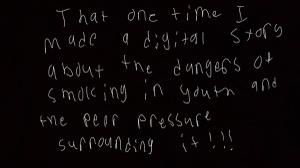 That one time I
made a digital story
about the dangers of
smoking in youth and
the peor pressure
surrounding it!!!